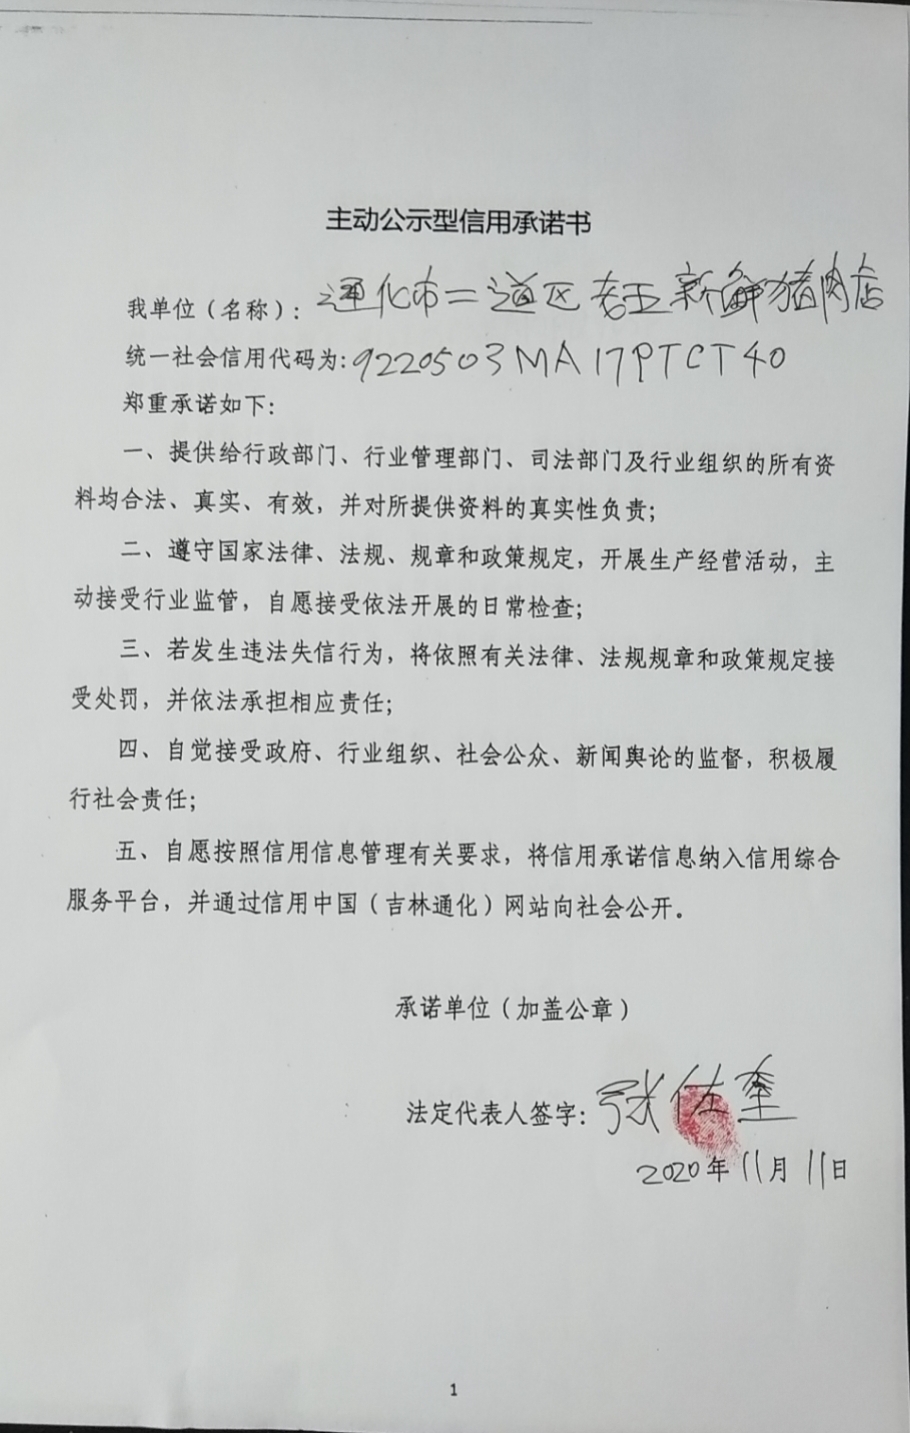 主动公示型信用承诺书
我单位（名称）：通化市二道区老王新鲜猪肉店
统一社会信用代码为:9220503MA17PTCT40
郑重承诺如下:
一、提供给行政部门、行业管理部门、司法部门及行业组织的所有资
料均合法、真实、有效，并对所提供资料的真实性负责;
二、遵守国家法律、法规、规章和政策规定，开展生产经营活动，主
动接受行业监管，自愿接受依法开展的日常检查;
三、若发生违法失信行为，将依照有关法律、法规规章和政策规定接
受处罚，并依法承担相应责任;
四、自觉接受政府、行业组织、社会公众、新闻舆论的监督，积极履
行社会责任;
五、自愿按照信用信息管理有关要求，将信用承诺信息纳入信用综合
服务平台，并通过信用中国（吉林通化）网站向社会公开。
承诺单位（加盖公章）
法定代表人签字:张佐奎
2020年11月11日
1